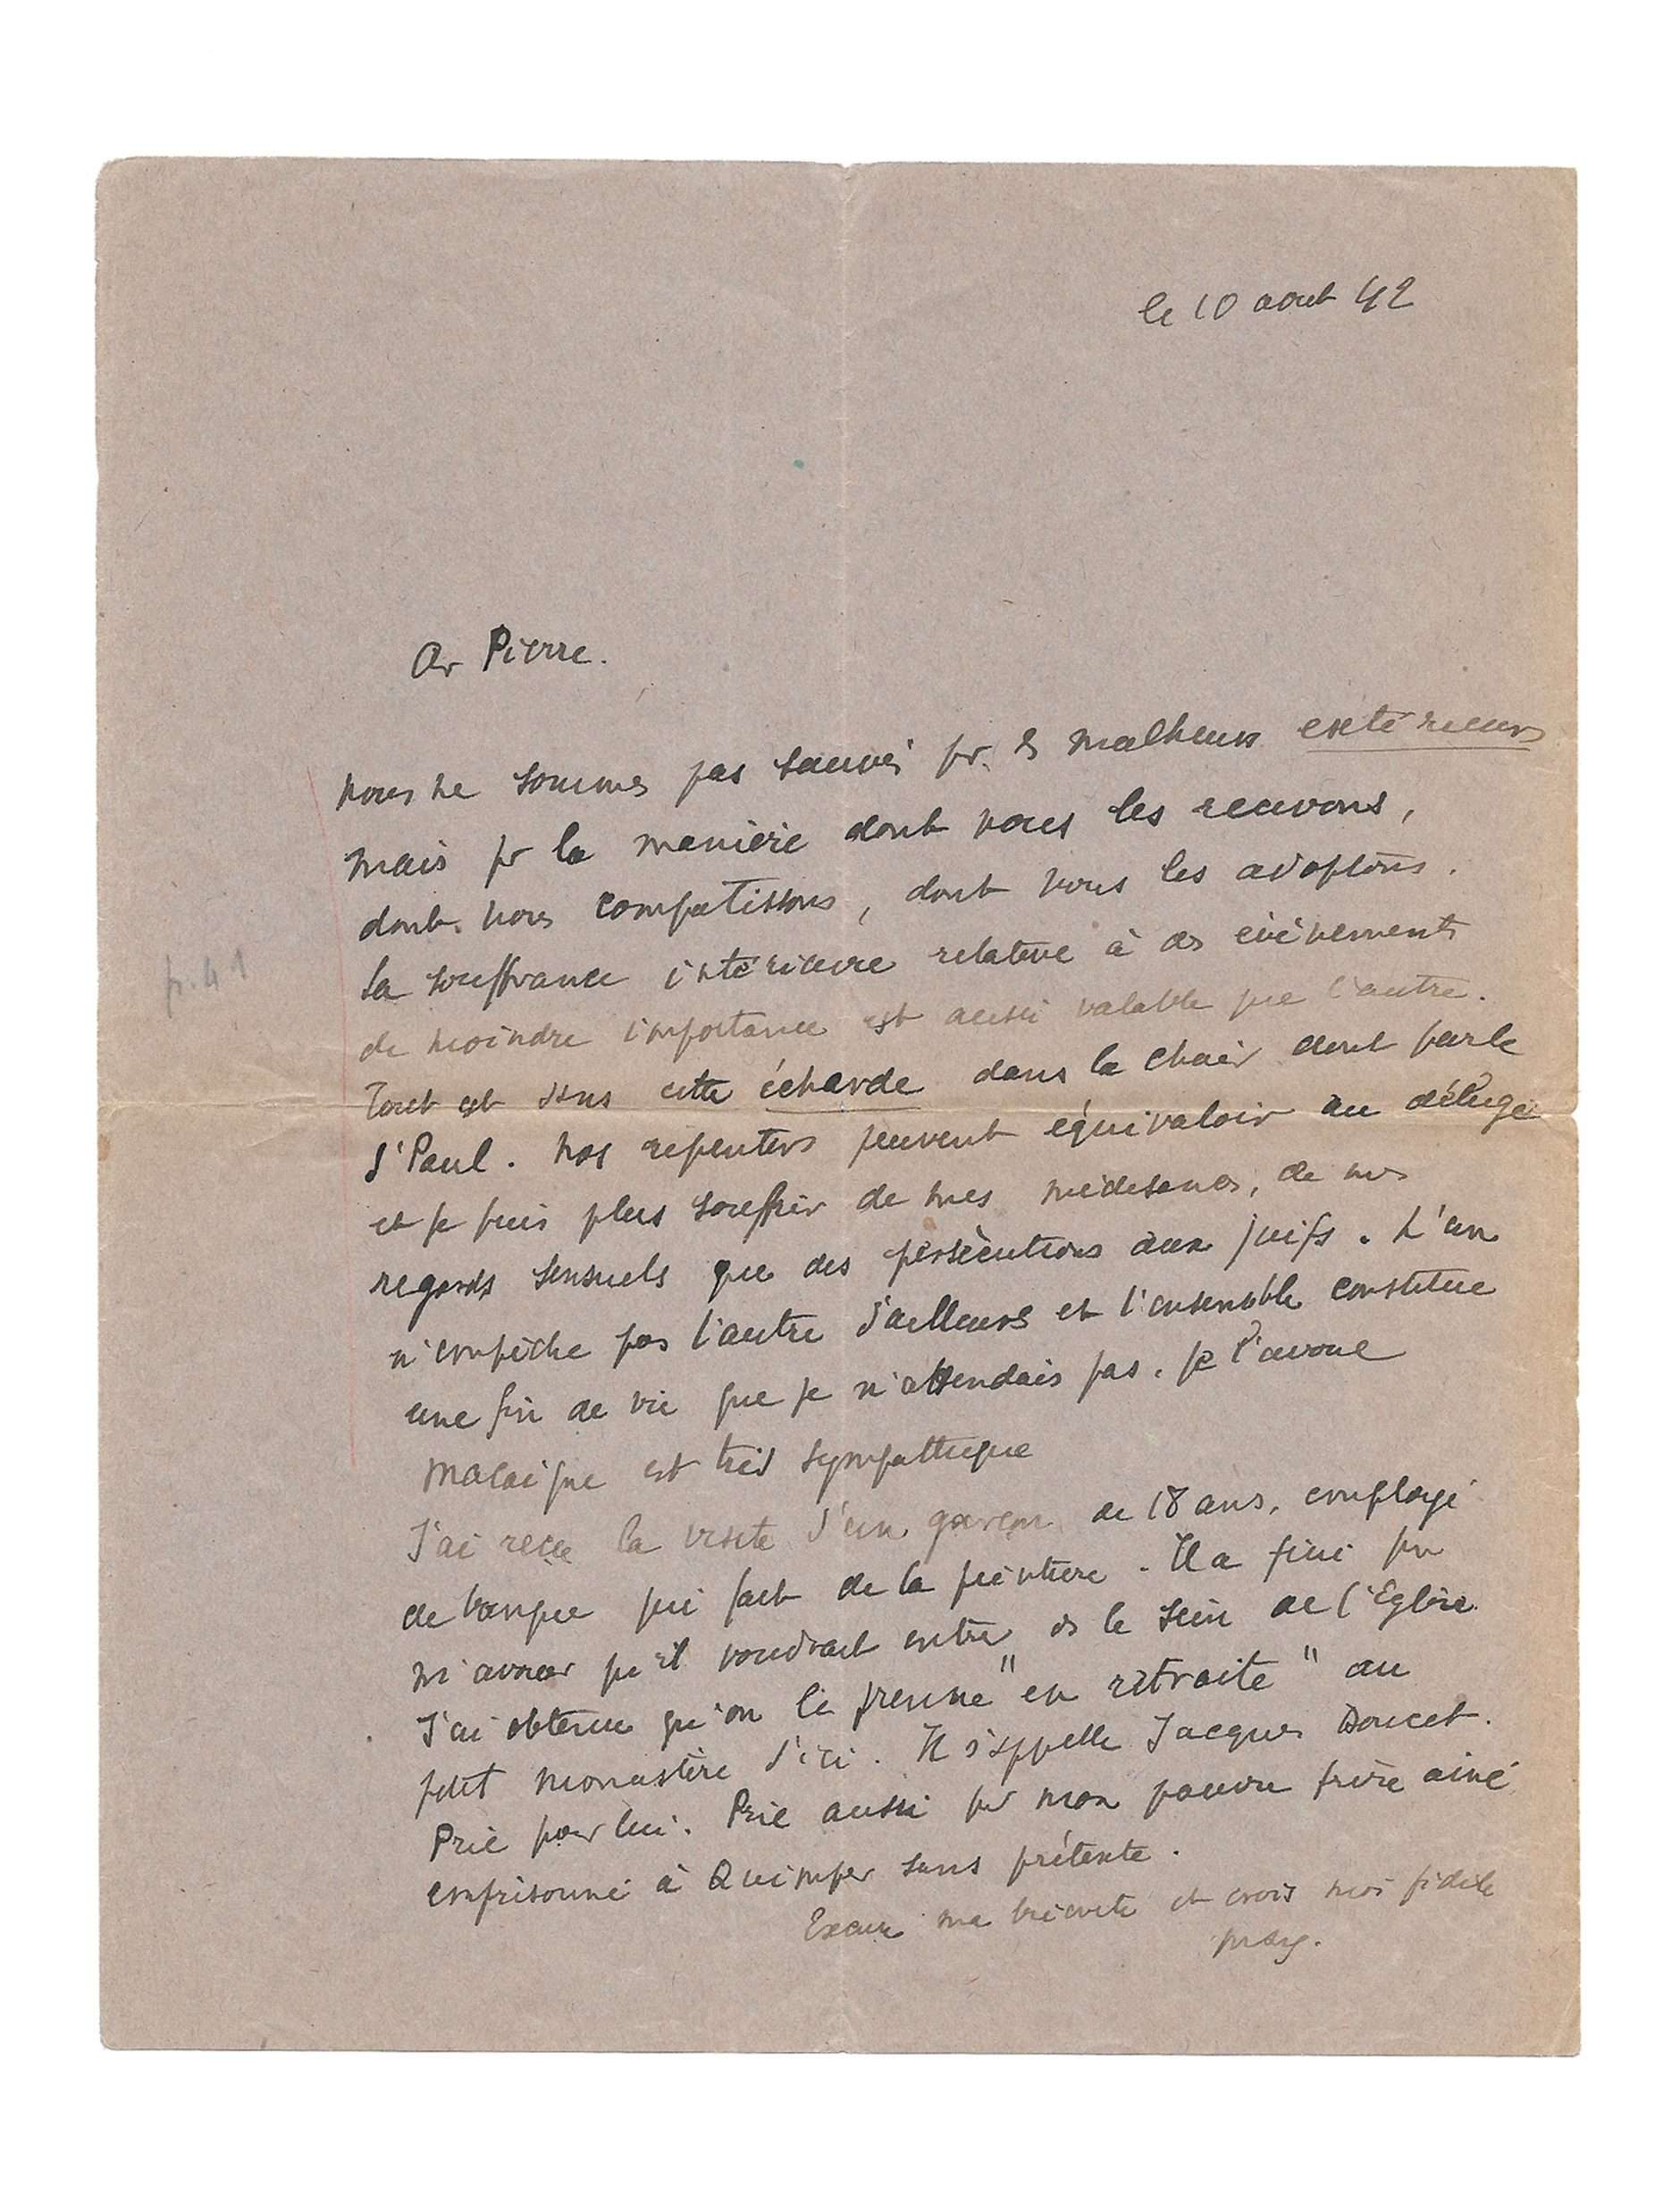 le 10 aout 42
Cr Pierre.
nous ne sommes pas sauvés pr ls malheurs extérieurs
mais pr la manière dont nous les recevons,
dont nous compatissons, dont nous les adoptons.
La souffrance intérieure relative à ds évènements
de moindre importance est aussi valable que l'autre.
Tout est dans cette écharde dans la chair dont parle
St Paul. Nos repentirs peuvent équivaloir au déluge
et je puis plus souffrir de mes médisances, de mes
regards sensuels que des persécutions aux juifs. L'un
n'empêche pas l'autre d'ailleurs et l'ensemble constitue
une fin de vie que je n'attendais pas. je l'avoue
est très sympathique
J'ai reçu la visite d'un garçon de 18 ans, employé
de banque qui fait de la peinture. Il a fini pr
m'avouer qu'il voudrait entrer ds le sein de l'Eglise
J'ai obtenu qu'on le prenne "en retraite" au
petit monastère d'ici. Il s'appelle Jacques Doucet.
Prie pour lui. Prie aussi pr mon pauvre frère ainé
emprisonné à Quimper sans prétexte.
Excuse ma brièveté et crois moi fidèle
p. 41